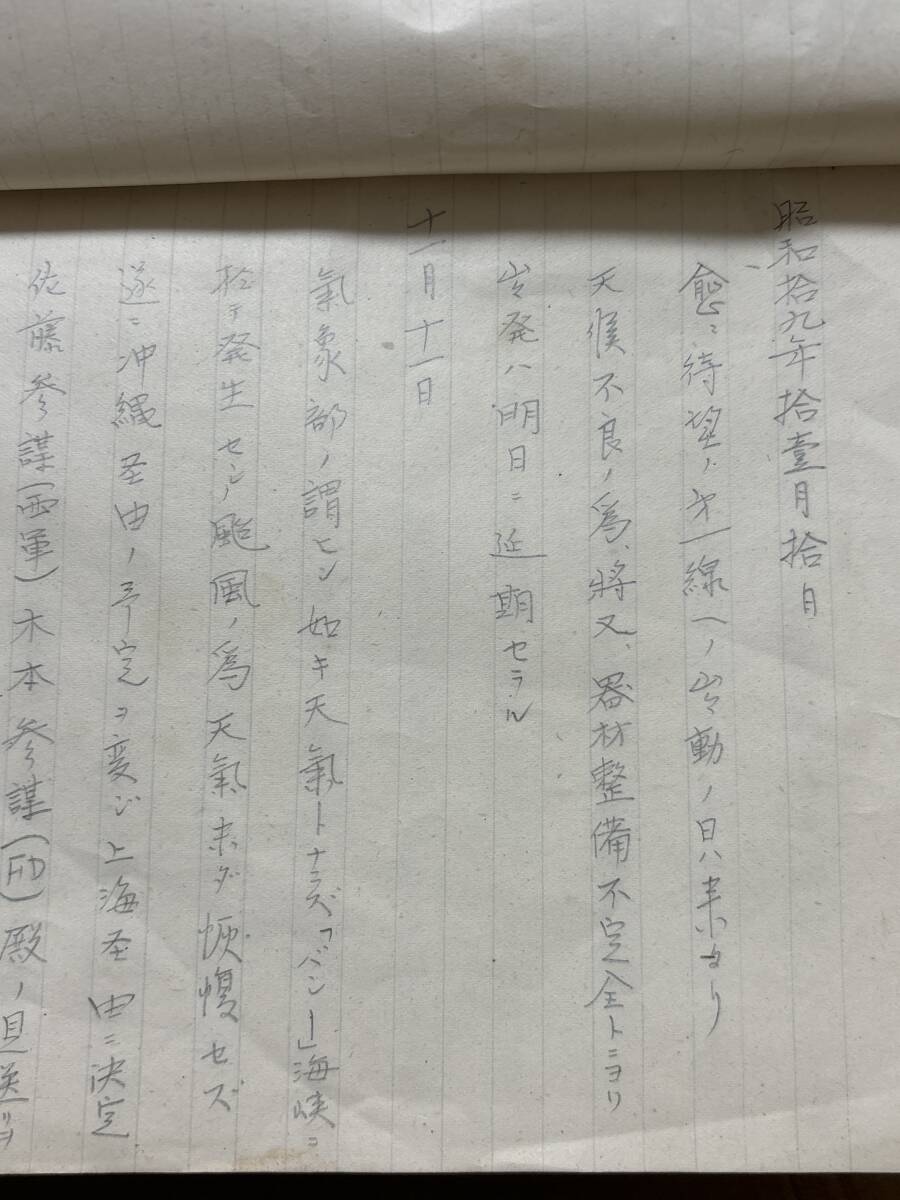 昭和拾九年拾壹月拾日
愈々待望ノ㐧一線ヘノ出動ノ日ハ来タリ
天候不良ノ爲、將又、器材整備不完全トニヨリ
出発ハ明日ニ延期セラル
十一月十一日
氣象部ノ謂ヒシ如キ天氣トナラズ「バシー」海峡ニ
於テ発生セシ颱風ノ爲天氣未ダ恢復セズ
遂ニ沖縄圣由ノ予定ヲ変ジ上海圣由ニ決定
佐藤参謀(西軍)木本参謀(FD)殿ノ見送リヲ